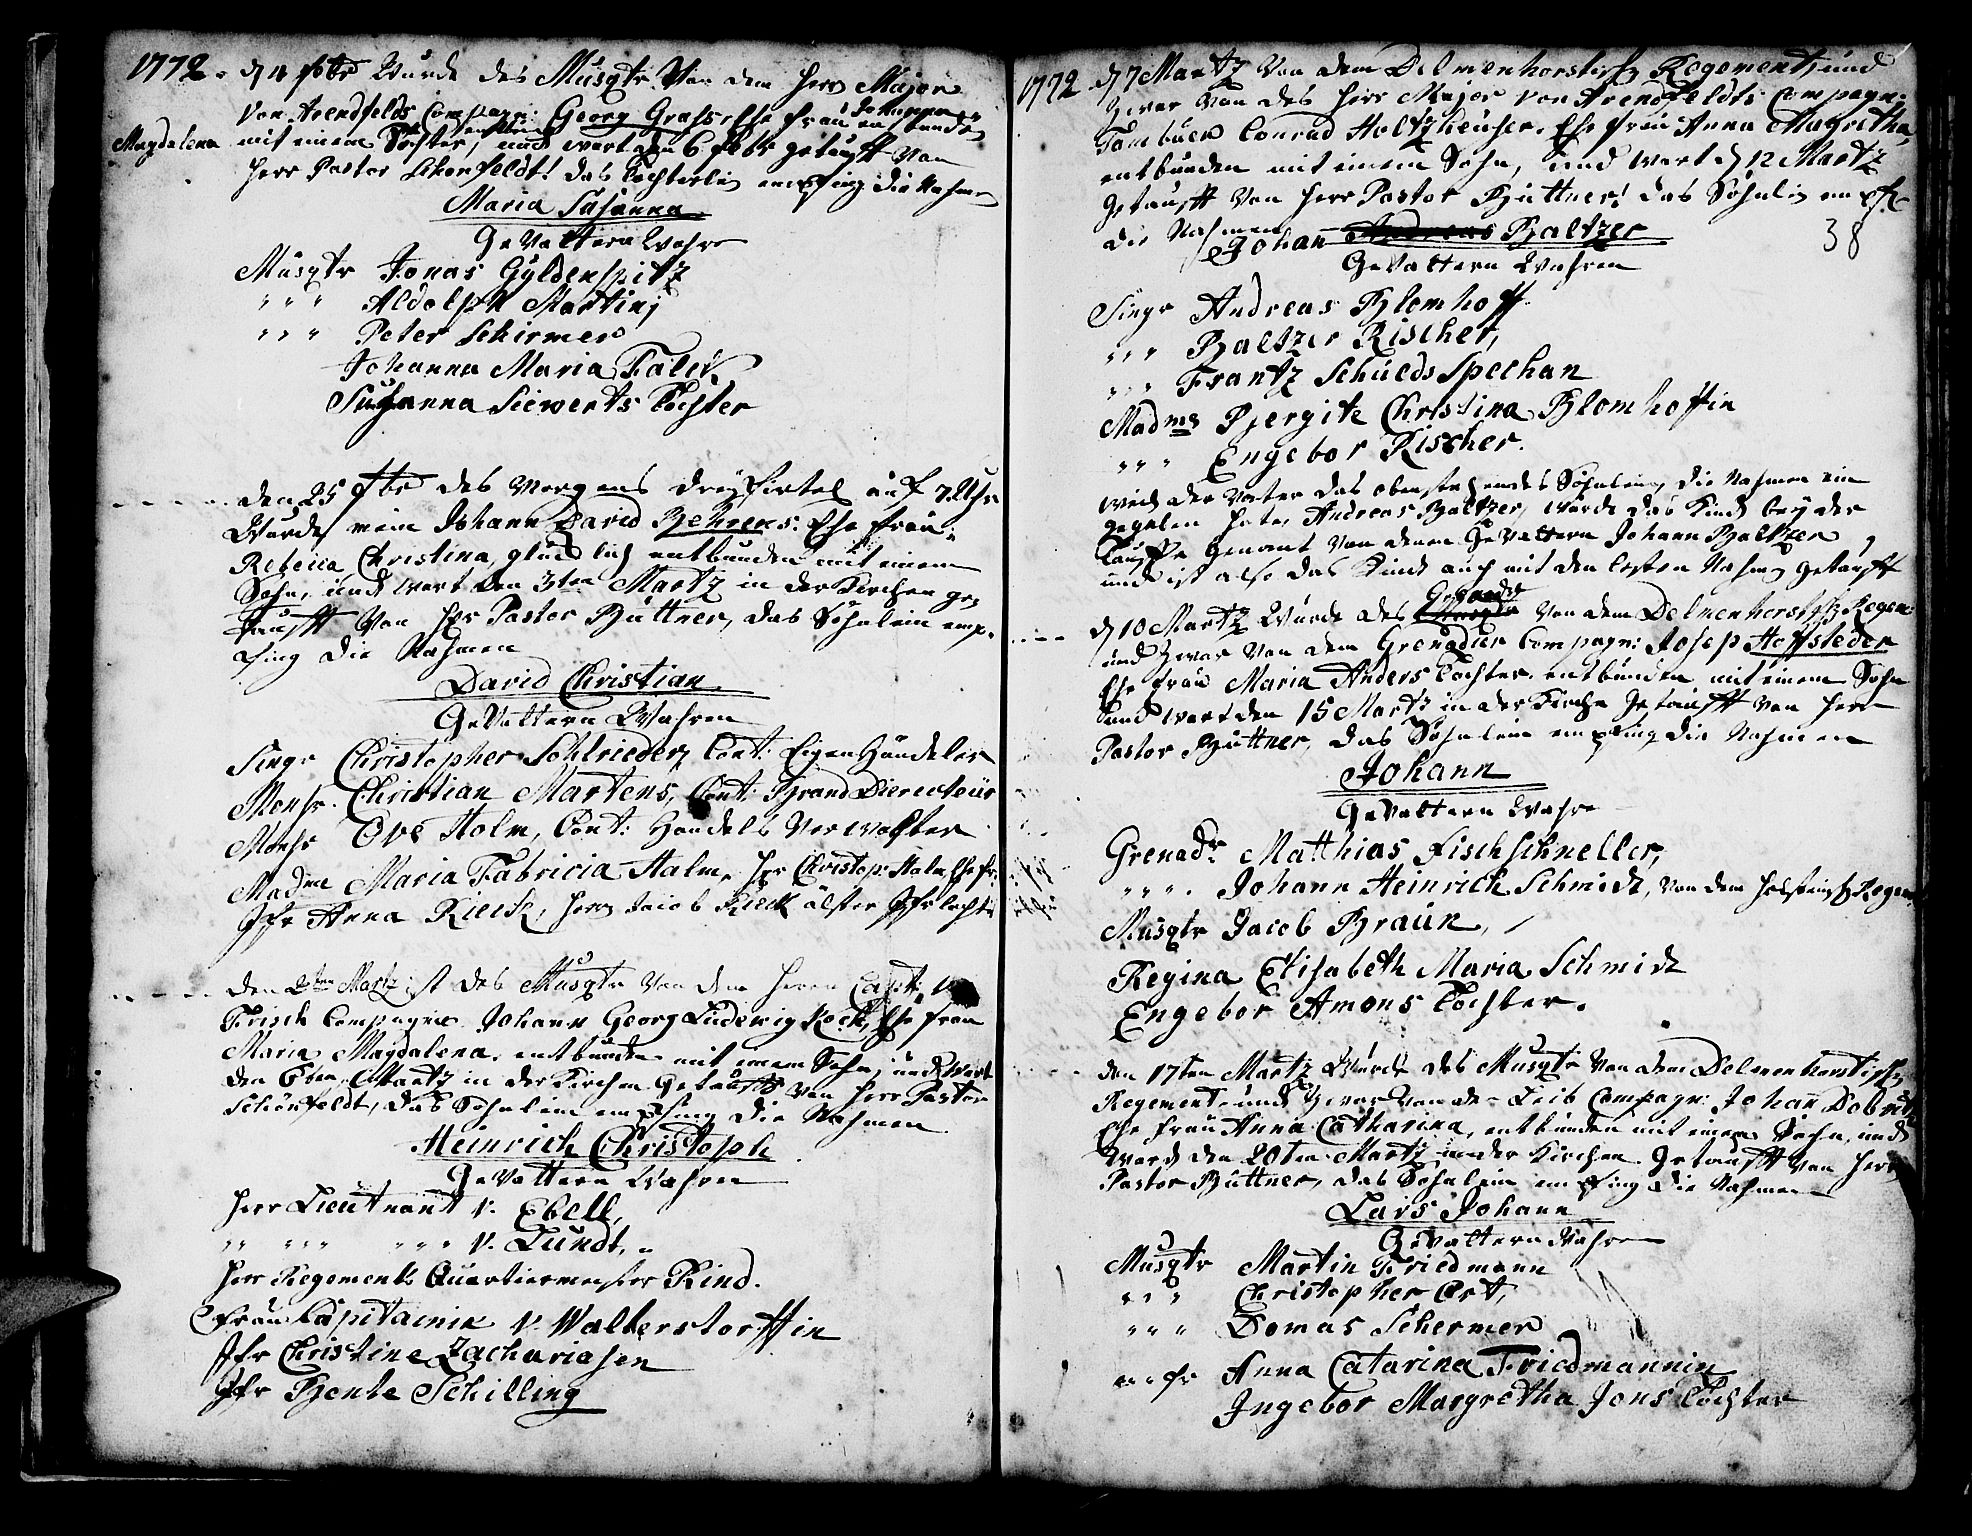 1772. d 4 febr Wurde des Musqtr Von dem Herr Major
Von Arendfeldts Compagn: Georg Grass, Ehe frau Johanna
Magdalena entbunden
mit einem Tochter, und wart den 6 febr getaufft von
Herr Pastor Schönfeldt! das Töchterlein empfing die Nahmen
Maria Susanna
GeVattern Wahre
Musqtr Jonas Gyldenspitz
" " " Aldolph Martinj
" " " Peter Schirmer
Johanna Maria Falck
Susanna Siewerts Tochter
den 25 febr des Morgens dreyfirtel auf 7 Uhr
Wurde mein Johann David Behrens: Ehe frau:
Rebecca Christina, glücklich entbunden mit einem
Sohn, und wart den 3ten Martz in der Kirchen ge-
taufft Von Herr Pastor Büttner, das Söhnlein emp-
fing die Nahmen
David Christian
GeVattern Wahren
Singr Christopher Schlrieder, Cont: Eigen Händeler
Monsr. Christian Martens, Cont: Brand Dierecteür
Monsr Ove Holm, Cont: Handels Verwalter
Madme Maria Fabricia Halm, Herr Christop: Halm Ehe fr:
Jfr Anna Kieck, Herr Jacob Kieck älster Jfr Tochter
den 2ten Martz ist des Musqtr Von dem Herrn Capt: V.
Frisch Compagnie Johann Georg Ludewig Kock, Ehe frau
Maria Magdalena, entbunden mit einem Sohn, und Wart
den 6ten Martz in der Kirchen Getaufft Von Herr Pastor
Schönfeldt, das Söhnlein empfing die Nahmen
Heinrich Christoph
GeVattern Wahren
Herr Lieutnant v. Ebell,
" " " " " " " " v. Lundt,
Herr Regements Quartiermeister Rind.
Frau Capitainin v. Walterstorffin
Jfr Christine Zachariasen
Jfr Bente Schilling
1772 d 7 Martz Von dem Delmenhorstisch Regement, und
Zwar Von des Herr Major von Arendfeldts Compagn:
Tambuer Conrad Holtzheuser, Ehe frau Anna Magretha,
entbunden mit einem Sohn, und wart d 12 Martz
Getaufft Von Herr Pastor Büttner! das Söhnlein empf:
die Nahmen
Johan Andreas Baltzer
38
GeVattern Wahren
Singr Andreas Blomhoff
" " " Baltzer Rischer,
" " " Frantz Schüldsspechan
Madms Bergite Christina Blomhoffin
" " " Engebor Rischer.
weil der Vater das obenstehendes Söhnlein, die Nahmen ein
gegeben hate, Andreas Baltzer, wurde das Kind bey der
Tauffe Genant Von denen GeVattern Johann Baltzer,
und ist also das Kind auch mit den lesten Nahmen Getaufft
d 10 Martz Wurde des Grenadr Von dem Delmenhorstisch Regem:
und Zwar Von dem Grenadier Compagn: Josep Hoffsteder
Ehe frau Maria Anders Tochter, entbunden mit einem Sohn
und wart den 15 Martz in der Kirche Getaufft von Herr
Pastor Büttner, das Söhnlein empfing die Nahmen
Johann
GeVattern Wahre
Grenadr Matthias Fischschneller,
" " " Johann Heinrich Schmidt, von dem Holsteinisch Regem:
Musqtr Jacob Braun,
Regina Elisabeth Maria Schmidt
Engebor Amons Tochter.
den 17ten Martz Wurde des Musqtr Von dem Delmenhorstisch
Regement, und Zwar Von der Leib Compagn: Johan
Ehe frau Anna Catharina, entbunden mit einem Sohn, und
Ward den 20ten Martz in der Kirchen Getaufft Von Herr
Pastor Büttner, das Söhnlein empfing die Nahmen
Lars Johann
GeVattern Wahren
Musqtr Martin Friedmann
" " " Christopher Ort,
" " " Domas Schermer
Anna Catarina Friedmannin
Ingebor Margretha Jons Tochter